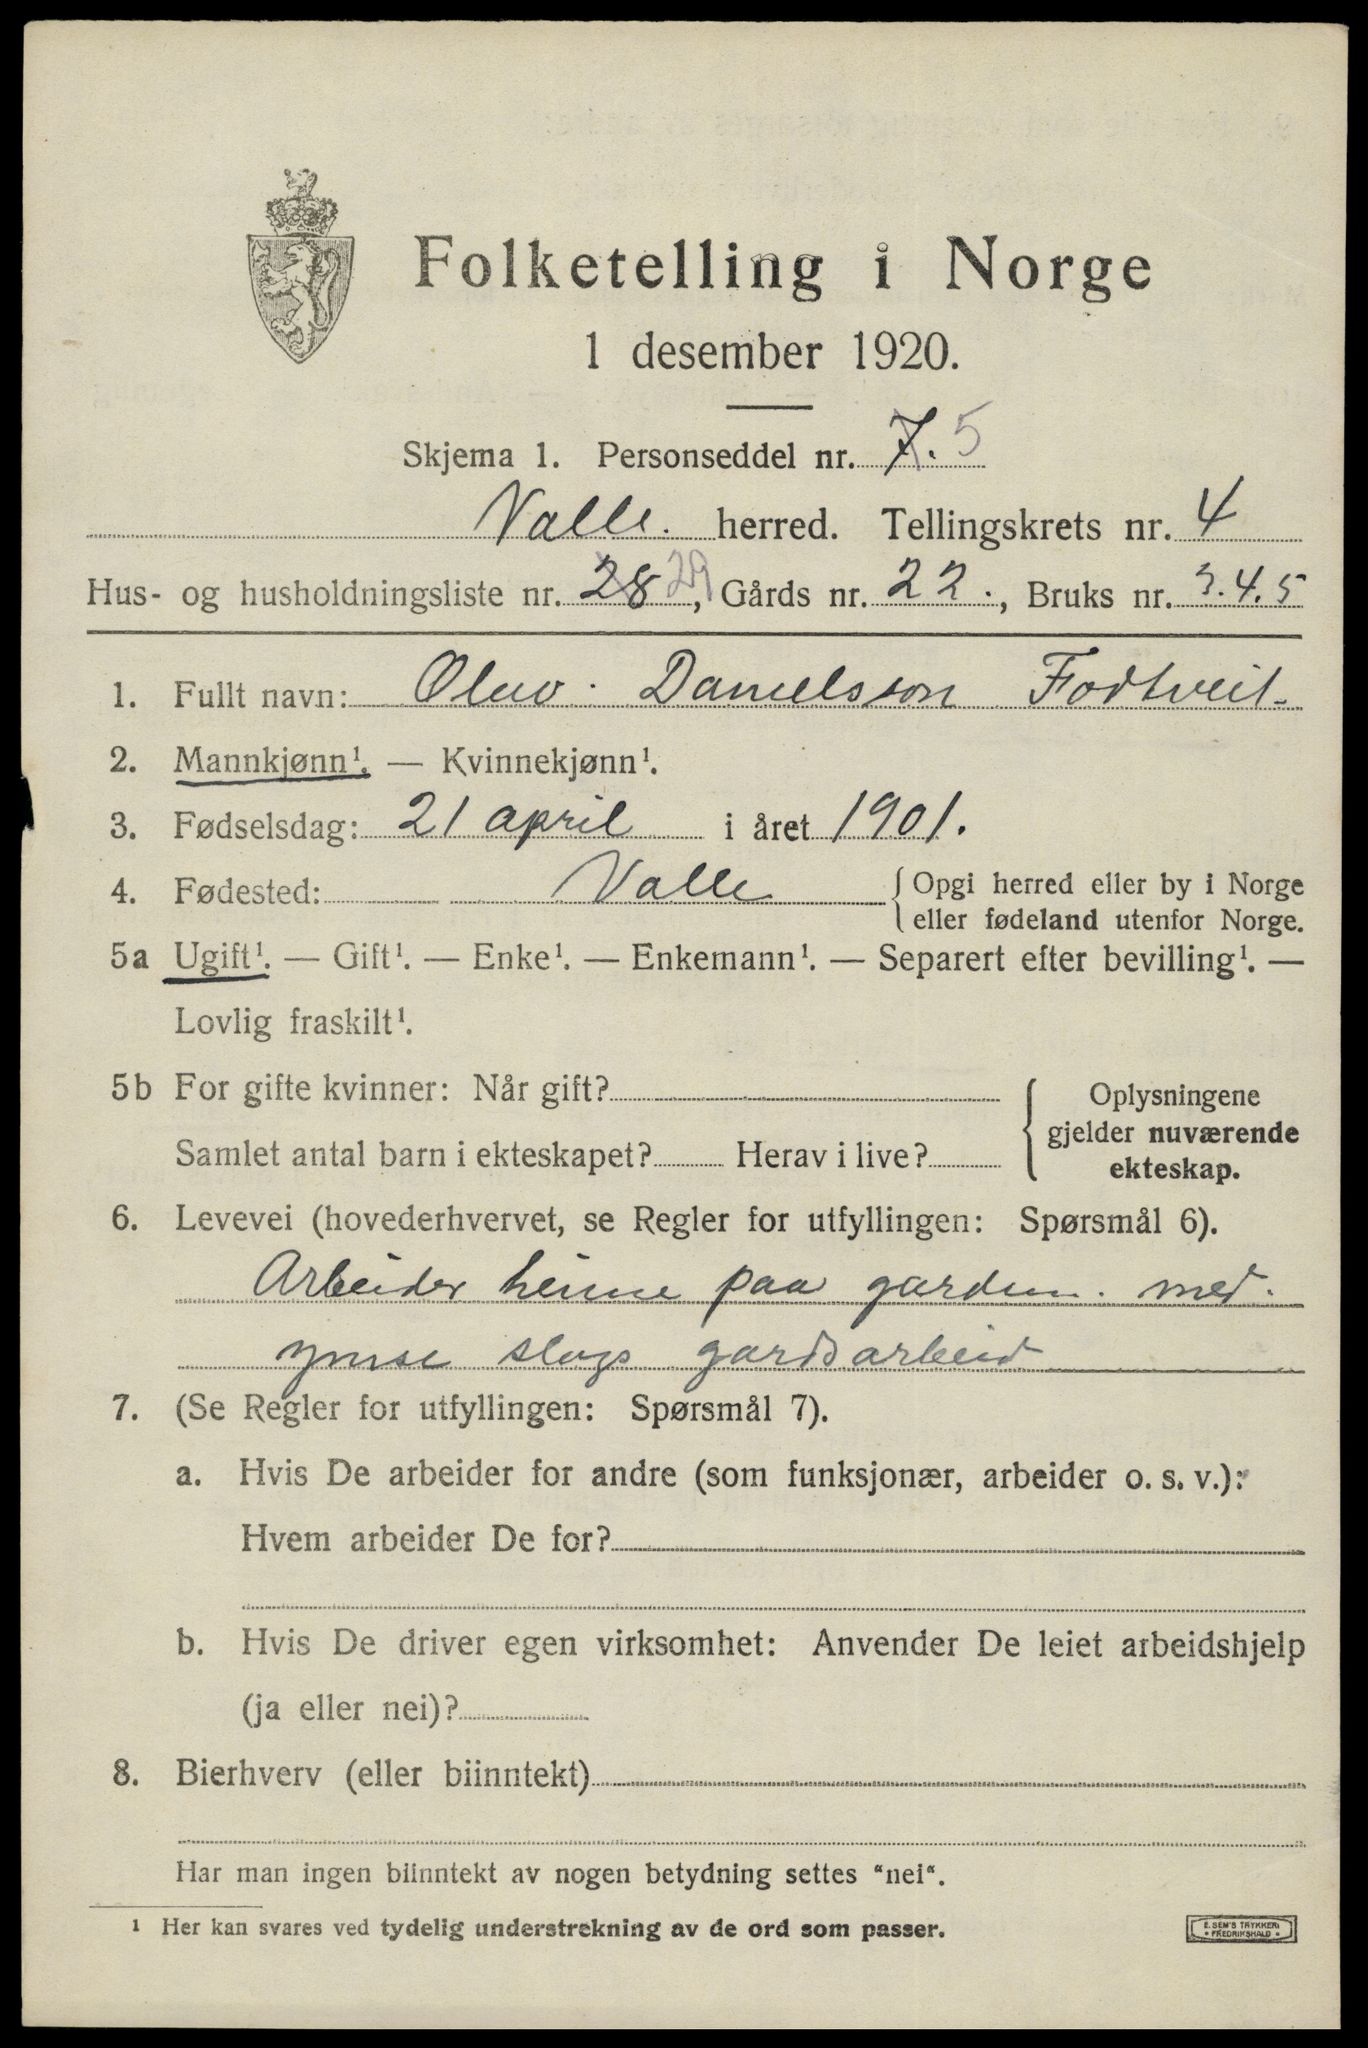 Folketelling i Norge
1 desember 1920.
Skjema 1. Personseddel nr. 7. 5
Valle. herred. Tellingskrets nr. 4
Hus- og husholdningsliste nr. 28 29, Gårds nr. 22., Bruks nr. 3.4.5
1. Fullt navn: Oluv Danielsson Fodtveit.
2. Mannkjønn¹. — Kvinnekjønn¹.
3. Fødselsdag: 21 april i året 1901.
4. Fødested: Valle { Opgi herred eller by i Norge
eller fødeland utenfor Norge.
5a Ugift¹. — Gift¹. — Enke¹. — Enkemann¹. — Separert efter bevilling¹. —
Lovlig fraskilt¹.
5b For gifte kvinner: Når gift?
Samlet antal barn i ekteskapet? Herav i live?
{ Oplysningene
gjelder nuværende
ekteskap.
6. Levevei (hovederhvervet, se Regler for utfyllingen: Spørsmål 6).
Arbeider heime paa garden. med
ymse slags gardsarbeid
7. (Se Regler for utfyllingen: Spørsmål 7).
a. Hvis De arbeider for andre (som funksjonær, arbeider o. s. v.):
Hvem arbeider De for?
b. Hvis De driver egen virksomhet: Anvender De leiet arbeidshjelp
(ja eller nei)?
8. Bierhverv (eller biinntekt)
Har man ingen biinntekt av nogen betydning settes "nei".
1 Her kan svares ved tydelig understrekning av de ord som passer.
E. SEM'S TRYKKERI
• FREDRIKSHALD •